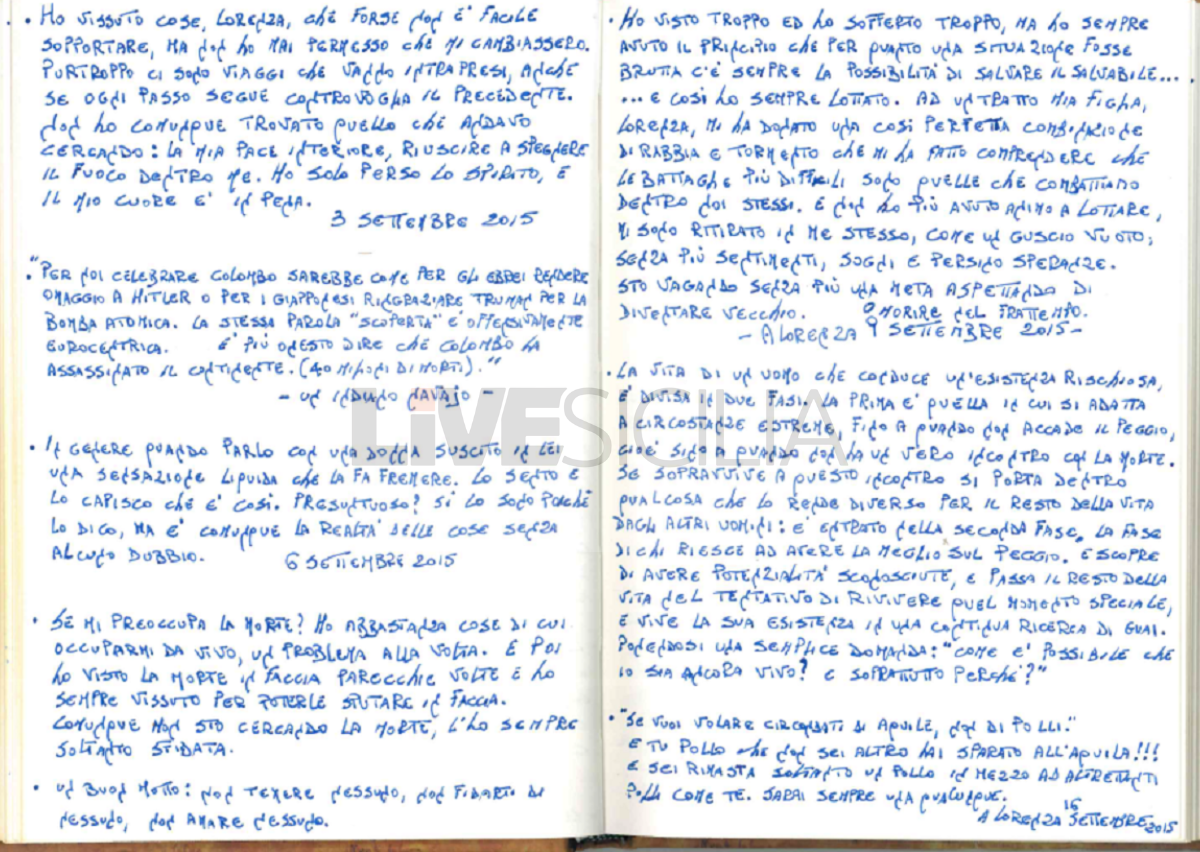 • HO VISSUTO COSE, LORENZA, CHE FORSE NON E' FACILE
SOPPORTARE, MA NON HO MAI PERMESSO CHE MI CAMBIASSERO.
PURTROPPO CI SONO VIAGGI CHE VANNO INTRAPRESI, ANCHE
SE OGNI PASSO SEGUE CONTROVOGLIA IL PRECEDENTE.
NON HO COMUNQUE TROVATO QUELLO CHE ANDAVO
CERCANDO: LA MIA PACE INTERIORE, RIUSCIRE A SPEGNERE
IL FUOCO DENTRO ME. HO SOLO PERSO LO SPIRITO, E
IL MIO CUORE E' IN PENA.
3 SETTEMBRE 2015
• "PER NOI CELEBRARE COLOMBO SAREBBE COME PER GLI EBREI RENDERE
OMAGGIO A HITLER O PER I GIAPPONESI RINGRAZIARE TRUMAN PER LA
BOMBA ATOMICA. LA STESSA PAROLA "SCOPERTA" E' OFFENSIVAMENTE
EUROCENTRICA. E' PIÙ ONESTO DIRE CHE COLOMBO HA
ASSASSINATO IL CONTINENTE. (40 MILIONI DI MORTI)."
- UN INDIANO NAVAJO -
• IN GENERE QUANDO PARLO CON UNA DONNA SUSCITO IN LEI
UNA SENSAZIONE LIQUIDA CHE LA FA FREMERE. LO SENTO E
LO CAPISCO CHE E' COSÌ. PRESUNTUOSO? SÌ LO SONO POICHÉ
LO DICO, MA E' COMUNQUE LA REALTÀ DELLE COSE SENZA
ALCUNO DUBBIO. 6 SETTEMBRE 2015
• SE MI PREOCCUPA LA MORTE? HO ABBASTANZA COSE DI CUI
OCCUPARMI DA VIVO, UN PROBLEMA ALLA VOLTA. E POI
HO VISTO LA MORTE IN FACCIA PARECCHIE VOLTE E HO
SEMPRE VISSUTO PER POTERLE SPUTARE IN FACCIA.
COMUNQUE NON STO CERCANDO LA MORTE, L'HO SEMPRE
SOLTANTO SFIDATA.
• UN BUON MOTTO: NON TEMERE NESSUNO, NON FIDARTI DI
NESSUNO, NON AMARE NESSUNO.
• HO VISTO TROPPO ED HO SOFFERTO TROPPO, MA HO SEMPRE
AVUTO IL PRINCIPIO CHE PER QUANTO UNA SITUAZIONE FOSSE
BRUTTA C'È SEMPRE LA POSSIBILITÀ DI SALVARE IL SALVABILE...
... E COSÌ HO SEMPRE LOTTATO. AD UN TRATTO MIA FIGLIA,
LORENZA, MI HA DONATO UNA COSÌ PERFETTA COMBINAZIONE
DI RABBIA E TORMENTO CHE MI HA FATTO COMPRENDERE CHE
LE BATTAGLIE PIÙ DIFFICILI SONO QUELLE CHE COMBATTIAMO
DENTRO NOI STESSI. E NON HO PIÙ AVUTO ANIMO A LOTTARE,
MI SONO RITIRATO IN ME STESSO, COME UN GUSCIO VUOTO;
SENZA PIÙ SENTIMENTI, SOGNI E PERSINO SPERANZE.
STO VAGANDO SENZA PIÙ UNA META ASPETTANDO DI
DIVENTARE VECCHIO. O MORIRE NEL FRATTEMPO.
- A LORENZA 9 SETTEMBRE 2015 -
• LA VITA DI UN UOMO CHE CONDUCE UN'ESISTENZA RISCHIOSA,
E' DIVISA IN DUE FASI. LA PRIMA E' QUELLA IN CUI SI ADATTA
A CIRCOSTANZE ESTREME, FINO A QUANDO NON ACCADE IL PEGGIO,
CIOE' SINO A QUANDO NON HA UN VERO INCONTRO CON LA MORTE.
SE SOPRAVVIVE A QUESTO INCONTRO SI PORTA DENTRO
QUALCOSA CHE LO RENDE DIVERSO PER IL RESTO DELLA VITA
DAGLI ALTRI UOMINI: E' ENTRATO NELLA SECONDA FASE, LA FASE
DI CHI RIESCE AD AVERE LA MEGLIO SUL PEGGIO. E SCOPRE
DI AVERE POTENZIALITA' SCONOSCIUTE, E PASSA IL RESTO DELLA
VITA NEL TENTATIVO DI RIVIVERE QUEL MOMENTO SPECIALE,
E VIVE LA SUA ESISTENZA IN UNA CONTINUA RICERCA DI GUAI.
PONENDOSI UNA SEMPLICE DOMANDA: "COME E' POSSIBILE CHE
IO SIA ANCORA VIVO? E SOPRATTUTTO PERCHÉ?"
• "SE VUOI VOLARE CIRCONDATI DI AQUILE, NON DI POLLI."
E TU POLLO CHE NON SEI ALTRO HAI SPARATO ALL'AQUILA!!!
E SEI RIMASTA SOLTANTO UN POLLO IN MEZZO AD ALTRETTANTI
POLLI COME TE. SARAI SEMPRE UNA QUALUNQUE.
A LORENZA 16 SETTEMBRE 2015
LIVESICILIA